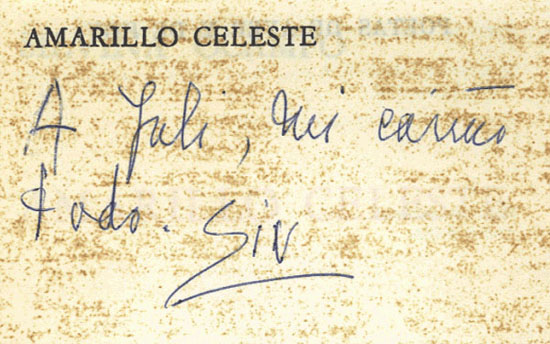 AMARILLO CELESTE
A Juli, mi cariño
todo. Siv